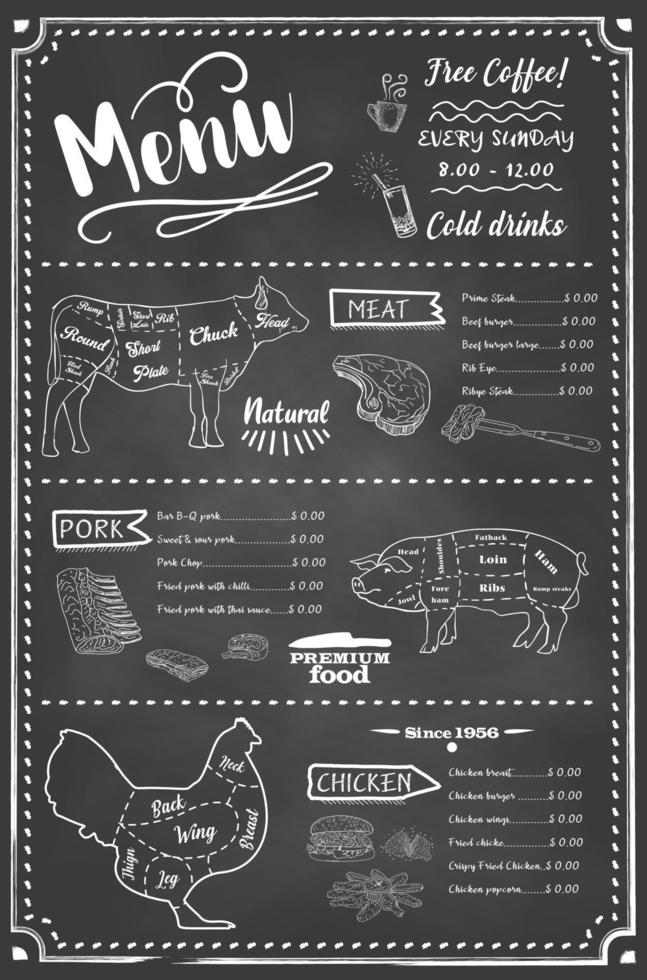 Menu
Free Coffee!
EVERY SUNDAY
8.00 - 12.00
Cold drinks
Rump
Sirloin
Short Loin
Rib
Head
Round
Chuck
Short
Plate
Hind Shank
Fore Shank
Brisket
Natural
MEAT
Prime Steak............$ 0.00
Beef burger............$ 0.00
Beef burger large......$ 0.00
Rib Eye................$ 0.00
Ribye Steak............$ 0.00
PORK
Bar B-Q pork..................$ 0.00
Sweet & sour pork..............$ 0.00
Pork Chop......................$ 0.00
Fried pork with chilli.........$ 0.00
Fried pork with thai sauce.....$ 0.00
Head
Shouldes
Fatback
Loin
Ham
Jowl
Fore ham
Ribs
Rump steaks
PREMIUM
food
Since 1956
Neck
Back
Wing
Breast
Thign
Leg
CHICKEN
Chicken breast.........$ 0.00
Chicken burger ........$ 0.00
Chicken wings..........$ 0.00
Fried chicke...........$ 0.00
Crispy Fried Chicken..$ 0.00
Chicken popcorn........$ 0.00